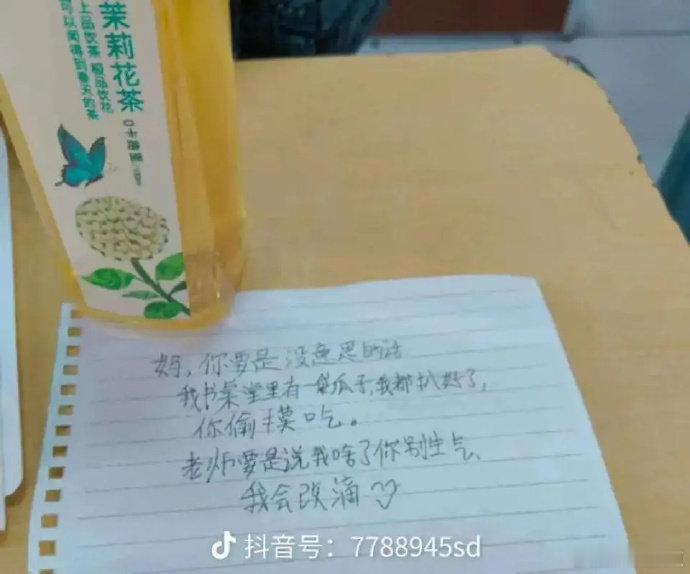 茉莉花茶
上品饮茶 极品饮花
可以闻得到春天的茶
0卡路里
妈，你要是没意思的话
我书桌堂里有一袋瓜子，我都扒好了，
你偷摸吃。
老师要是说我啥了你别生气，
我会改滴
抖音号：7788945sd